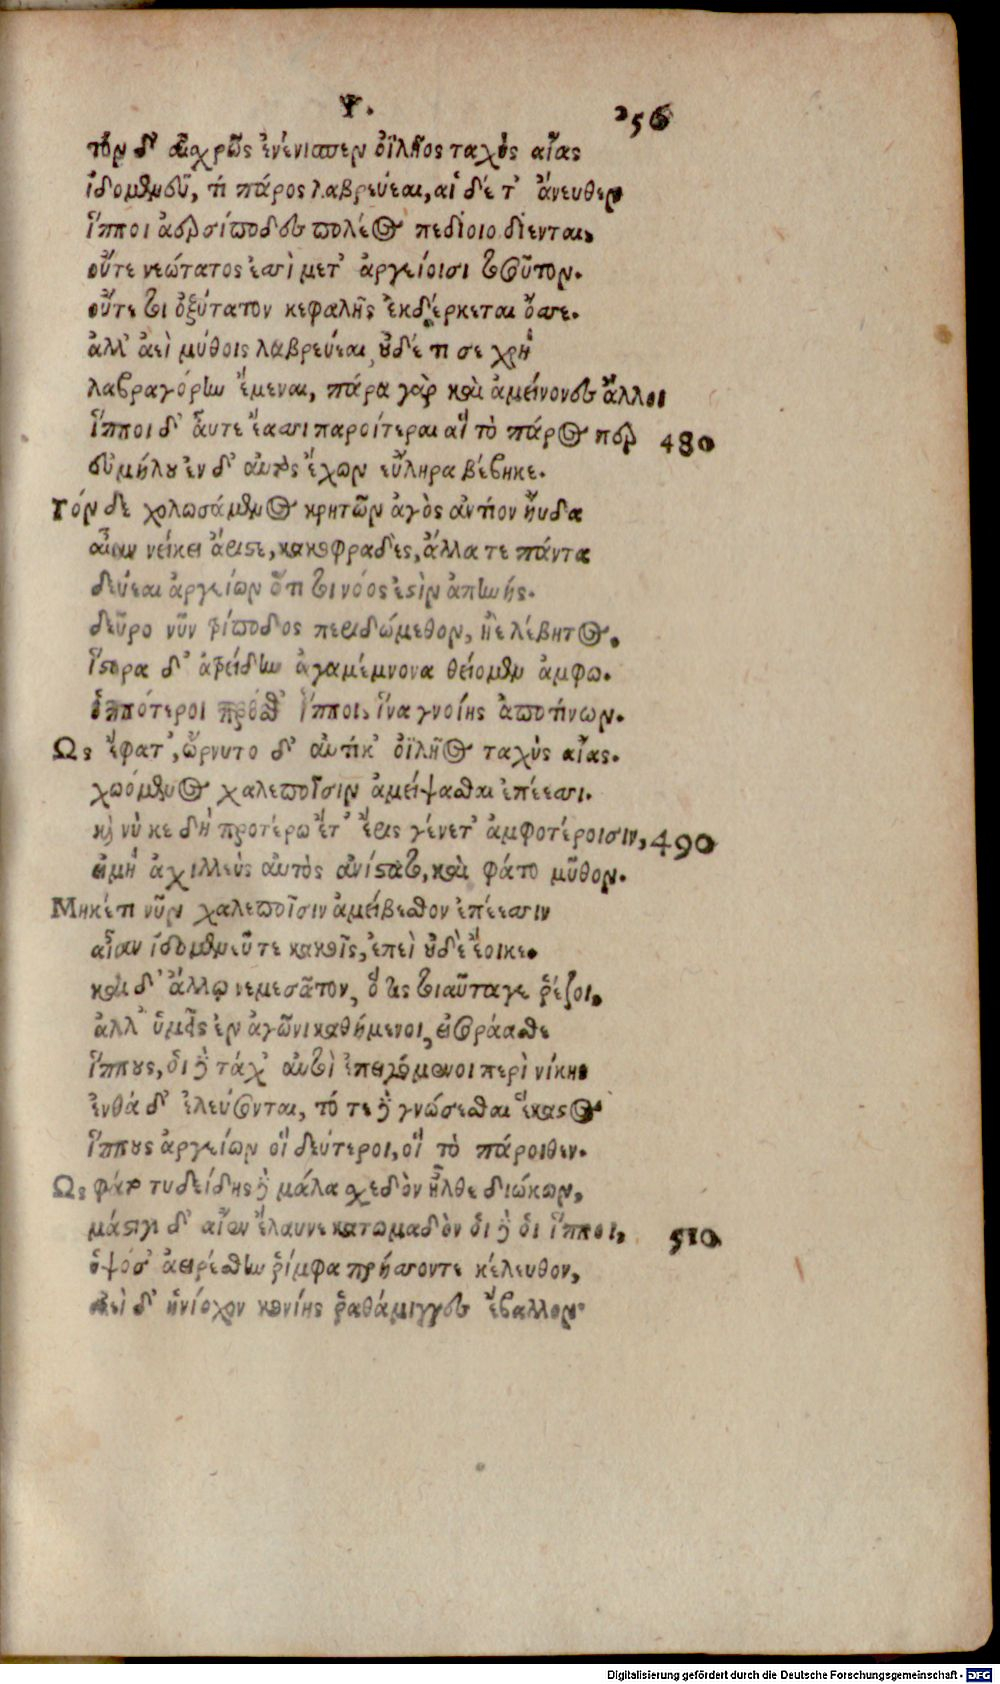 Ψ.
256
τὸν δ' αἰσχρῶς ἐνένιπεν ὀϊλῆος ταχὺς αἴας
ἰδομενεῦ, τί πάρος λαβρεύεαι, αἱ δέ τ' ἄνευθεν
ἵπποι ἀερσίποδες πολέος πεδίοιο δίενται,
οὔτε νεώτατος ἐσσὶ μετ' ἀργείοισι τοσοῦτον.
οὔτε τοι ὀξύτατον κεφαλῆς ἐκδέρκεται ὄσσε.
ἀλλ' ἀεὶ μύθοις λαβρεύεαι, οὐδέ τι σε χρὴ
λαβραγόρην ἔμεναι, πάρα γὰρ καὶ ἀμείνονες ἄλλοι
ἵπποι δ' αὖτε ἔασσι παροίτεραι αἳ τὸ πάρος περ 480
εὐμήλου ἐν δ' αὐτὸς ἔχων εὔληρα βέβηκε.
Τόν δε χολωσάμενος κρητῶν ἀγὸς ἀντίον ηὔδα
αἶαν νείκει ἄριστε, κακοφραδὲς, ἄλλα τε πάντα
δεύεαι ἀργείων ὅτι τοι νόος ἐστὶν ἀπηνής.
δεῦρο νῦν τρίποδος περιδώμεθον, ἠὲ λέβητος.
ἵστορα δ' ἀτρείδην ἀγαμέμνονα θείομεν ἄμφω.
ὁππότεροι πρόσθ' ἵπποι, ἵνα γνοίης ἀποτίνων.
Ως ἔφατ', ὤρνυτο δ' αὐτίκ' ὀϊλῆος ταχὺς αἴας.
χωόμενος χαλεποῖσιν ἀμείψασθαι ἐπέεσσι.
καὶ νύ κε δὴ προτέρω ἔτ' ἔρις γένετ' ἀμφοτέροισιν, 490
εἰ μὴ ἀχιλλεὺς αὐτὸς ἀνίστατο, καὶ φάτο μῦθον.
Μηκέτι νῦν χαλεποῖσιν ἀμείβεσθον ἐπέεσσιν
αἶαν ἰδομενεῦ τε κακοῖς, ἐπεὶ οὐδὲ ἔοικε.
καὶ δ' ἄλλῳ νεμεσᾶτον, ὅτις τοιαῦτα γε ῥέζοι.
ἀλλ' ὑμεῖς ἐν ἀγῶνι καθήμενοι, εἰσοράασθε
ἵππους, οἱ δὲ τάχ' αὐτοὶ ἐπειγόμενοι περὶ νίκης
ἐνθάδ' ἐλεύσονται, τότε δὲ γνώσεσθαι ἕκαστος
ἵππους ἀργείων οἳ δεύτεροι, οἳ τὸ πάροιθεν.
Ως φάτο τυδείδης δὲ μάλα σχεδὸν ἦλθε διώκων,
μάστιγι δ' αἰὲν ἔλαυνε κατωμαδὸν οἱ δὲ οἱ ἵπποι, 510
ὑψόσ' ἀειρέσθην ῥίμφα πρήσσοντε κέλευθον,
αἰεὶ δ' ἡνίοχον κονίης ῥαθάμιγγες ἔβαλλον·
Digitalisierung gefördert durch die Deutsche Forschungsgemeinschaft - DFG